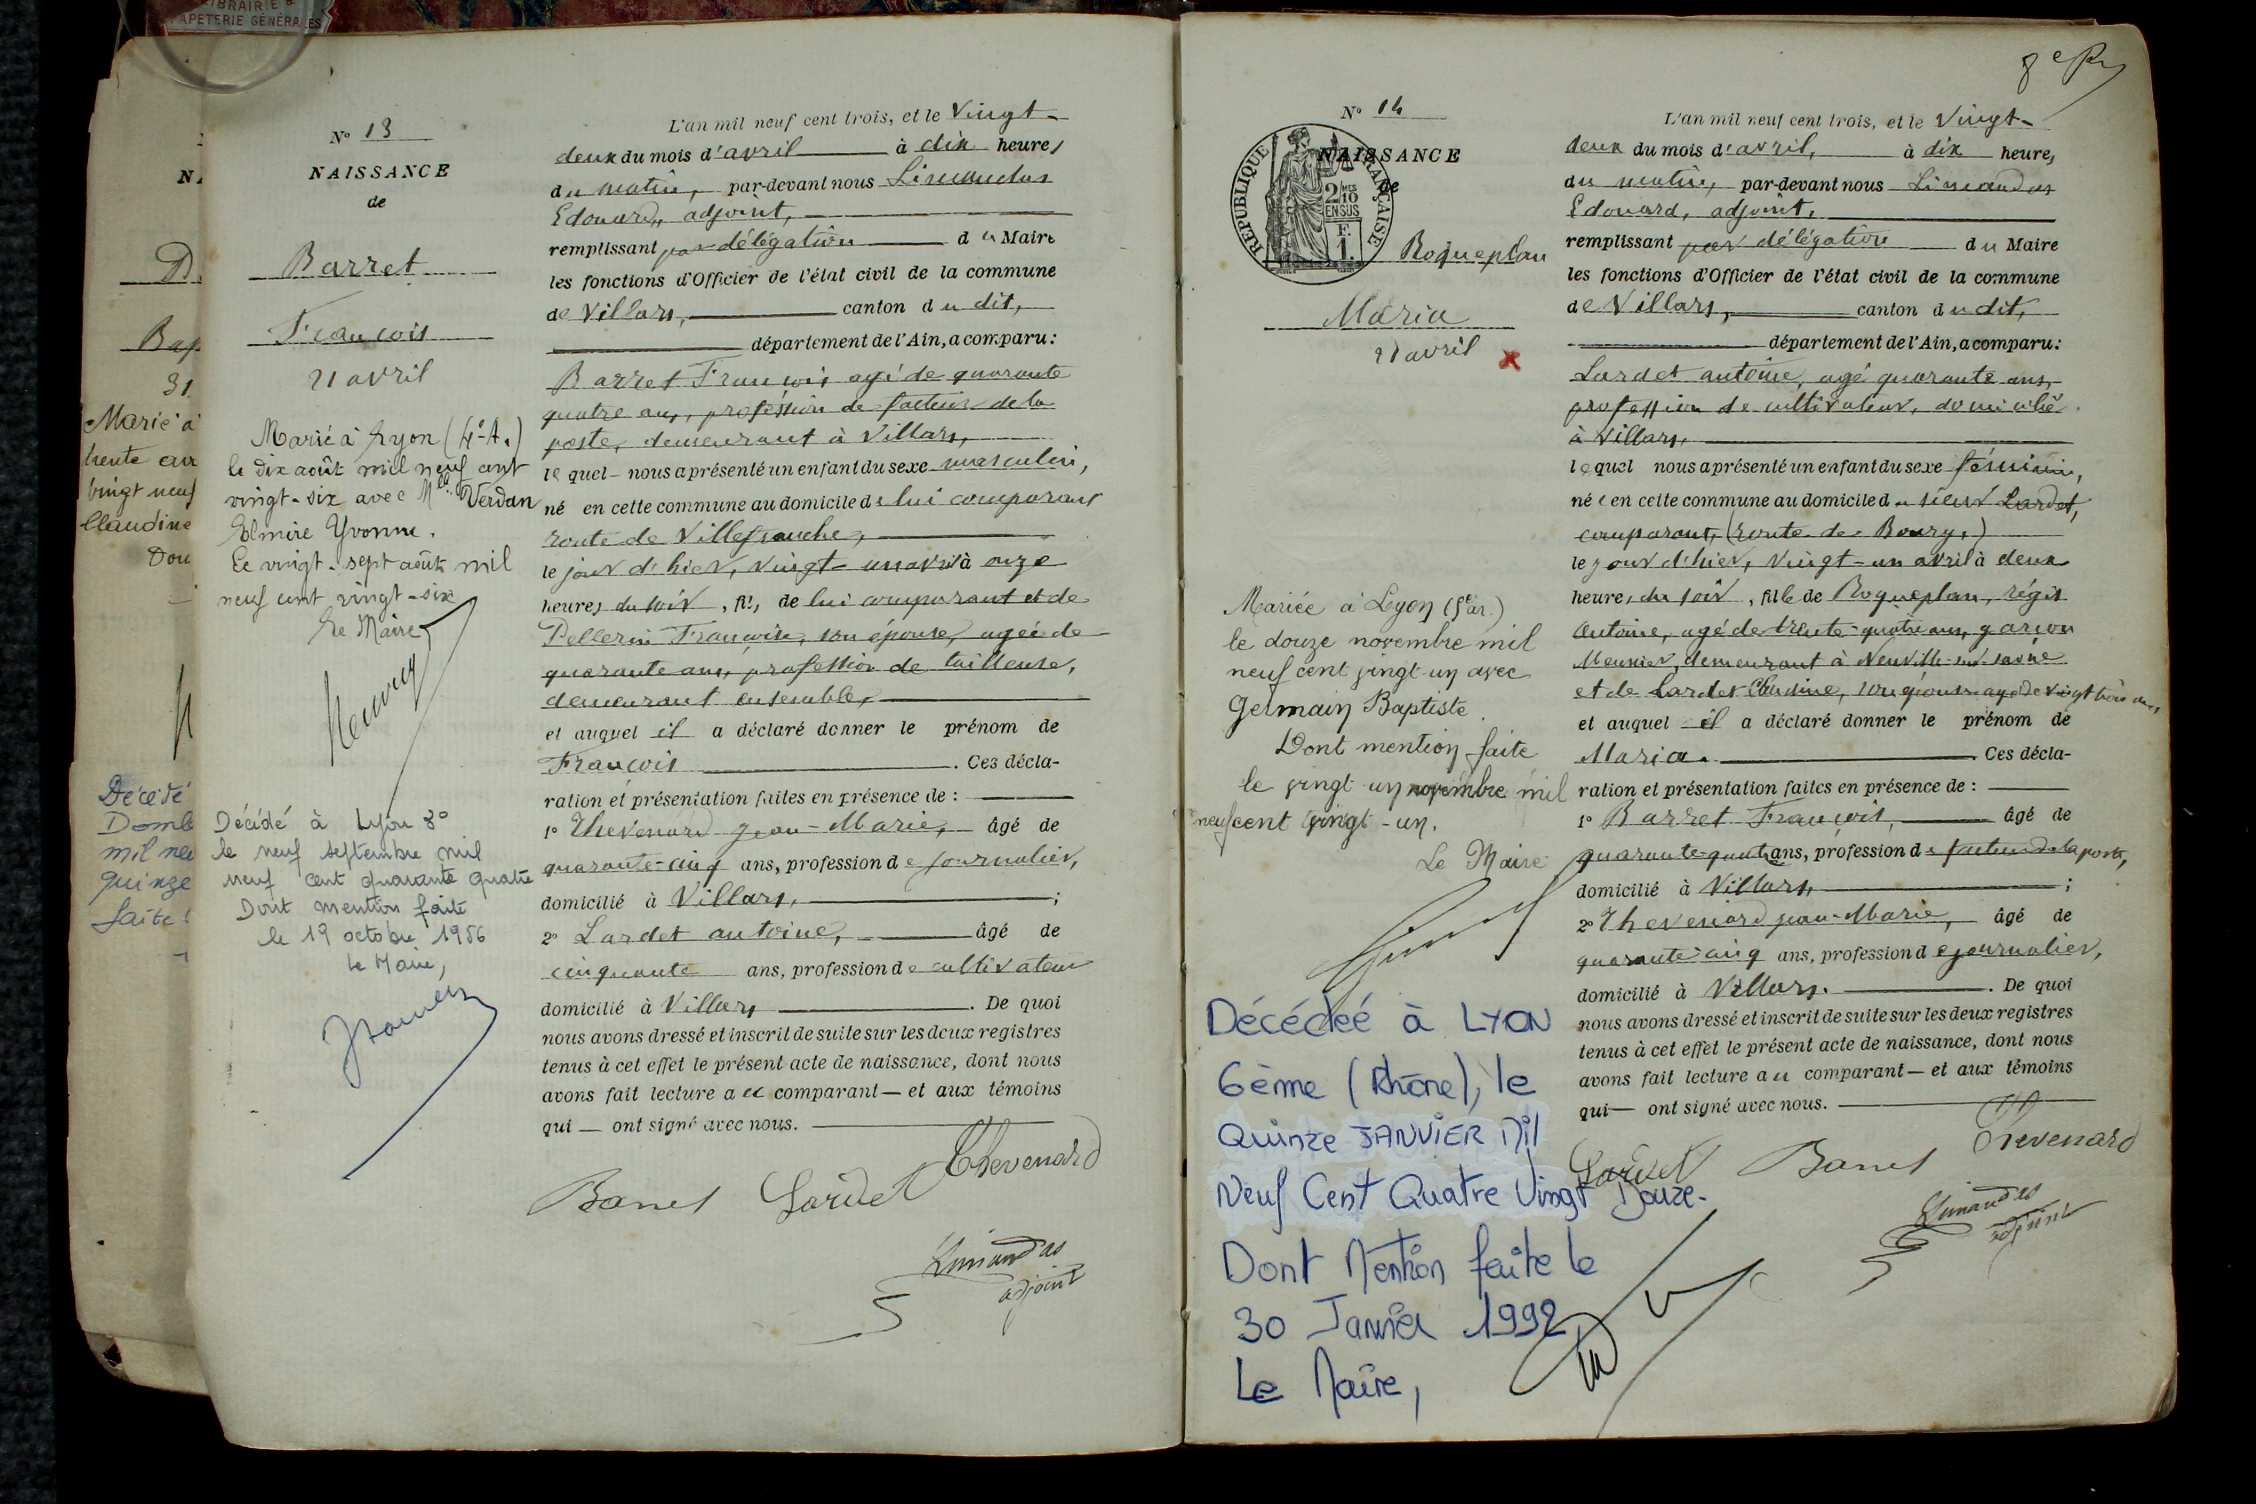 LIBRAIRIE &
PAPETERIE GÉNÉRALES
D.
Bap
31
Marié à
trente
vingt neuf
Claudine
Dou
Décédé
Domb
mil neu
quinze
faite
N° 13
NAISSANCE
de
Barret
François
21 avril
Marié à Lyon (4e A.)
le dix août mil neuf cent
vingt-six avec Melle Verdan
Elmire Yvonne.
Le vingt-sept août mil
neuf cent vingt-six
Le Maire
Décédé à Lyon 3e
le neuf septembre mil
neuf cent quarante quatre
Dont mention faite
le 19 octobre 1956
Le Maire,
L'an mil neuf cent trois, et le Vingt-
deux du mois d'avril à dix heures
du matin, par-devant nous Limandas
Edouard, adjoint,
remplissant par délégation du Maire
les fonctions d'Officier de l'état civil de la commune
de Villars, canton du dit,
département de l'Ain, a comparu:
Barret François agé de quarante
quatre ans, profession de facteur de la
poste, demeurant à Villars,
lequel nous a présenté un enfant du sexe masculin,
né en cette commune au domicile de lui comparant
route de Villefranche,
le jour d'hier, vingt-un avril à onze
heures du soir, fils de lui comparant et de
Pellerin Françoise, son épouse, agée de
quarante ans, profession de tailleuse,
demeurant ensemble,
et auquel il a déclaré donner le prénom de
François. Ces décla-
ration et présentation faites en présence de:
1° Thevenard Jean-Marie, âgé de
quarante-cinq ans, profession de journalier,
domicilié à Villars,;
2° Lardet antoine, âgé de
cinquante ans, profession de cultivateur
domicilié à Villars. De quoi
nous avons dressé et inscrit de suite sur les deux registres
tenus à cet effet le présent acte de naissance, dont nous
avons fait lecture au comparant— et aux témoins
qui — ont signé avec nous.
Thevenard
Barret Lardet
Limandas
adjoint
8e
N° 14
NAISSANCE
de
RÉPUBLIQUE FRANÇAISE
2/10
EN SUS
F.
1.
Roqueplan
Maria
21 avril
Mariée à Lyon (5e ar.)
le douze novembre mil
neuf cent vingt-un avec
Germain Baptiste.
Dont mention faite
le vingt-un novembre mil
neuf cent vingt-un.
Le Maire
Décédée à LYON
6ème (Rhône), le
Quinze JANVIER Mil
Neuf Cent Quatre Vingt Douze.
Dont Mention faite le
30 Janvier 1992
Le Maire,
L'an mil neuf cent trois, et le Vingt-
deux du mois d'avril, à dix heure,
du matin, par-devant nous Limandas
Edouard, adjoint,
remplissant par délégation du Maire
les fonctions d'Officier de l'état civil de la commune
de Villars, canton du dit,
département de l'Ain, a comparu:
Lardet antoine, agé quarante ans,
profession de cultivateur, domicilié
à Villars,
lequel nous a présenté un enfant du sexe féminin,
née en cette commune au domicile du sieur Lardet,
comparant, (route de Bourg,)
le jour d'hier, vingt-un avril à deux
heures du soir, fille de Roqueplan, régis
Antoine, agé de trente-quatre ans, garçon
Meunier, demeurant à Neuville-sur-saone
et de Lardet Claudine, son épouse agée de vingt trois ans
et auquel il a déclaré donner le prénom de
Maria. Ces décla-
ration et présentation faites en présence de:
1° Barret François, âgé de
quarante-quatre ans, profession de facteur de la poste,
domicilié à Villars,;
2° Thevenard jean-Marie, âgé de
quarante cinq ans, profession de journalier,
domicilié à Villars. De quoi
nous avons dressé et inscrit de suite sur les deux registres
tenus à cet effet le présent acte de naissance, dont nous
avons fait lecture au comparant— et aux témoins
qui— ont signé avec nous.
Thevenard
Lardet Barret
Limandas
adjoint